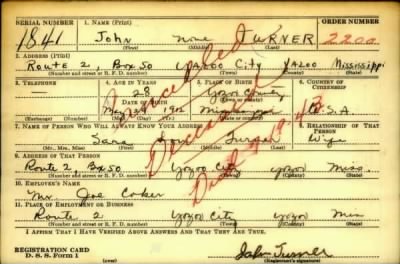 SERIAL NUMBER 1. NAME (Print) ORDER NUMBER
1841 John none TURNER 2200
(First) (Middle) (Last)
2. ADDRESS (Print)
Route 2, Box 50 YAZOO City YAZOO Mississippi
(Number and street or R. F. D. number) (Town) (County) (State)
3. TELEPHONE 4. AGE IN YEARS 5. PLACE OF BIRTH 6. COUNTRY OF CITIZENSHIP
28 Yazoo County
DATE OF BIRTH
Mississippi U.S.A.
(Exchange) (No.) (Mo.) (Day) (Yr.) (State or country)
7. NAME OF PERSON WHO WILL ALWAYS KNOW YOUR ADDRESS 8. RELATIONSHIP OF THAT PERSON
Sara Turner Wife
(Mr., Mrs., Miss) (First) (Middle) (Last)
9. ADDRESS OF THAT PERSON
Route 2, Box 50 Yazoo City Yazoo Miss.
(Number and street or R. F. D. number) (Town) (County) (State)
10. EMPLOYER'S NAME
Mr. Joe Coker
11. PLACE OF EMPLOYMENT OR BUSINESS
Route 2 Yazoo City Yazoo Miss
(Number and street or R. F. D. number) (Town) (County) (State)
I AFFIRM THAT I HAVE VERIFIED ABOVE ANSWERS AND THAT THEY ARE TRUE.
REGISTRATION CARD
D. S. S. Form 1
John Turner
(Registrant's signature)
Cancelled
Deceased